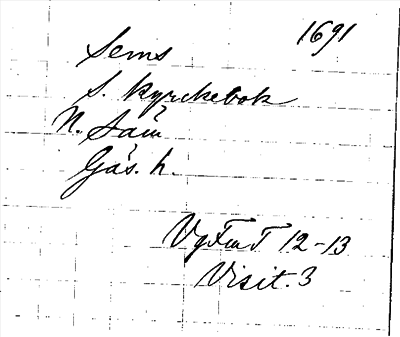 1691
Sems
S. kyrckebok
N. Säm
Gäs. h.
VgFmT 12-13
Visit. 3